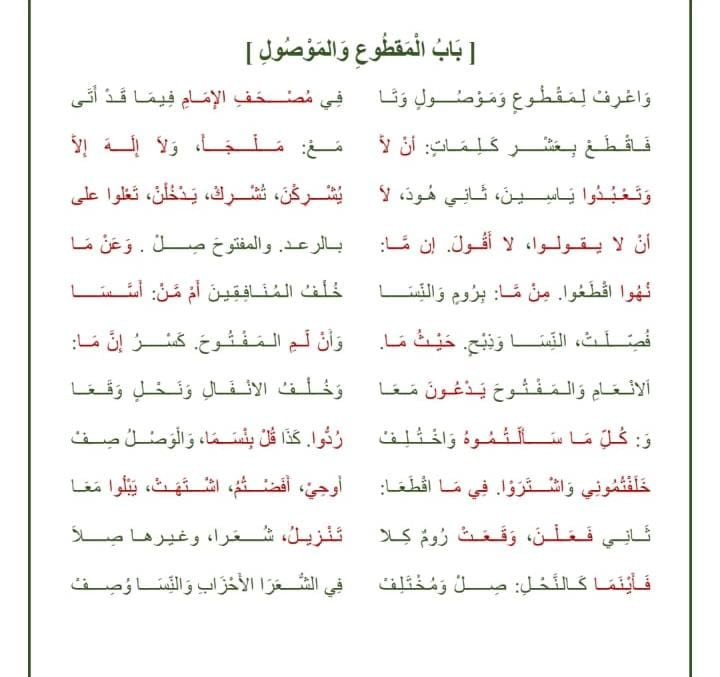 [ بَابُ الْمَقطُوعِ وَالمَوْصُولِ ]
وَاعْرِفْ لِمَقْطُوعٍ وَمَوْصُولٍ وَتَا فِي مُصْحَفِ الإِمَامِ فِيمَا قَدْ أَتَى
فَاقْطَعْ بِعَشْرِ كَلِمَاتٍ: أَنْ لاَّ مَعْ: مَلْجَأَ، وَلاَ إِلَهَ إِلاَّ
وَتَعْبُدُوا يَاسِينَ، ثَانِي هُودَ، لاَ يُشْرِكْنَ، تُشْرِكْ، يَدْخُلْنَ، تَعْلوَا على
أَنْ لا يقولوا، لا أَقُولَ. إن مَّا: بالرعد. والمفتوحَ صِلْ . وَعَنْ مَا
نُهُوا اقْطَعُوا. مِنْ مَّا: بِرُومٍ وَالنِّسَا خُلْفُ المُنَافِقِينَ أَمْ مَّنْ: أَسَّسَا
فُصِّلَتْ، النِّسَا وَذِبْحٍ. حَيْثُ مَا. وَأَنْ لَّمِ المَفْتُوحَ. كَسْرُ إِنَّ مَا:
اَلانْعَامِ وَالمَفْتُوحَ يَدْعُونَ مَعَا وَخُلْفُ الانْفَالِ وَنَحْلٍ وَقَعَا
وَ: كُلِّ مَا سَأَلْتُمُوهُ وَاخْتُلِفْ رُدُّوا. كَذَا قُلْ بِئْسَمَا، وَالْوَصْلُ صِفْ
خَلَفْتُمُونِي وَاشْتَرَوْا. فِي مَا اقْطَعَا: أوحِيْ، أَفَضْتُمُ، اشْتَهَتْ، يَبْلُوا مَعَا
ثَانِي فَعَلْنَ، وَقَعَتْ رُومٌ كِلا تَنْزِيلُ، شُعَرا، وغيرها صِلاَ
فَأَيْنَمَا كَالنَّحْلِ: صِلْ وَمُخْتَلِفْ فِي الشُّعَرَا الأَحْزَابِ وَالنِّسَا وُصِفْ